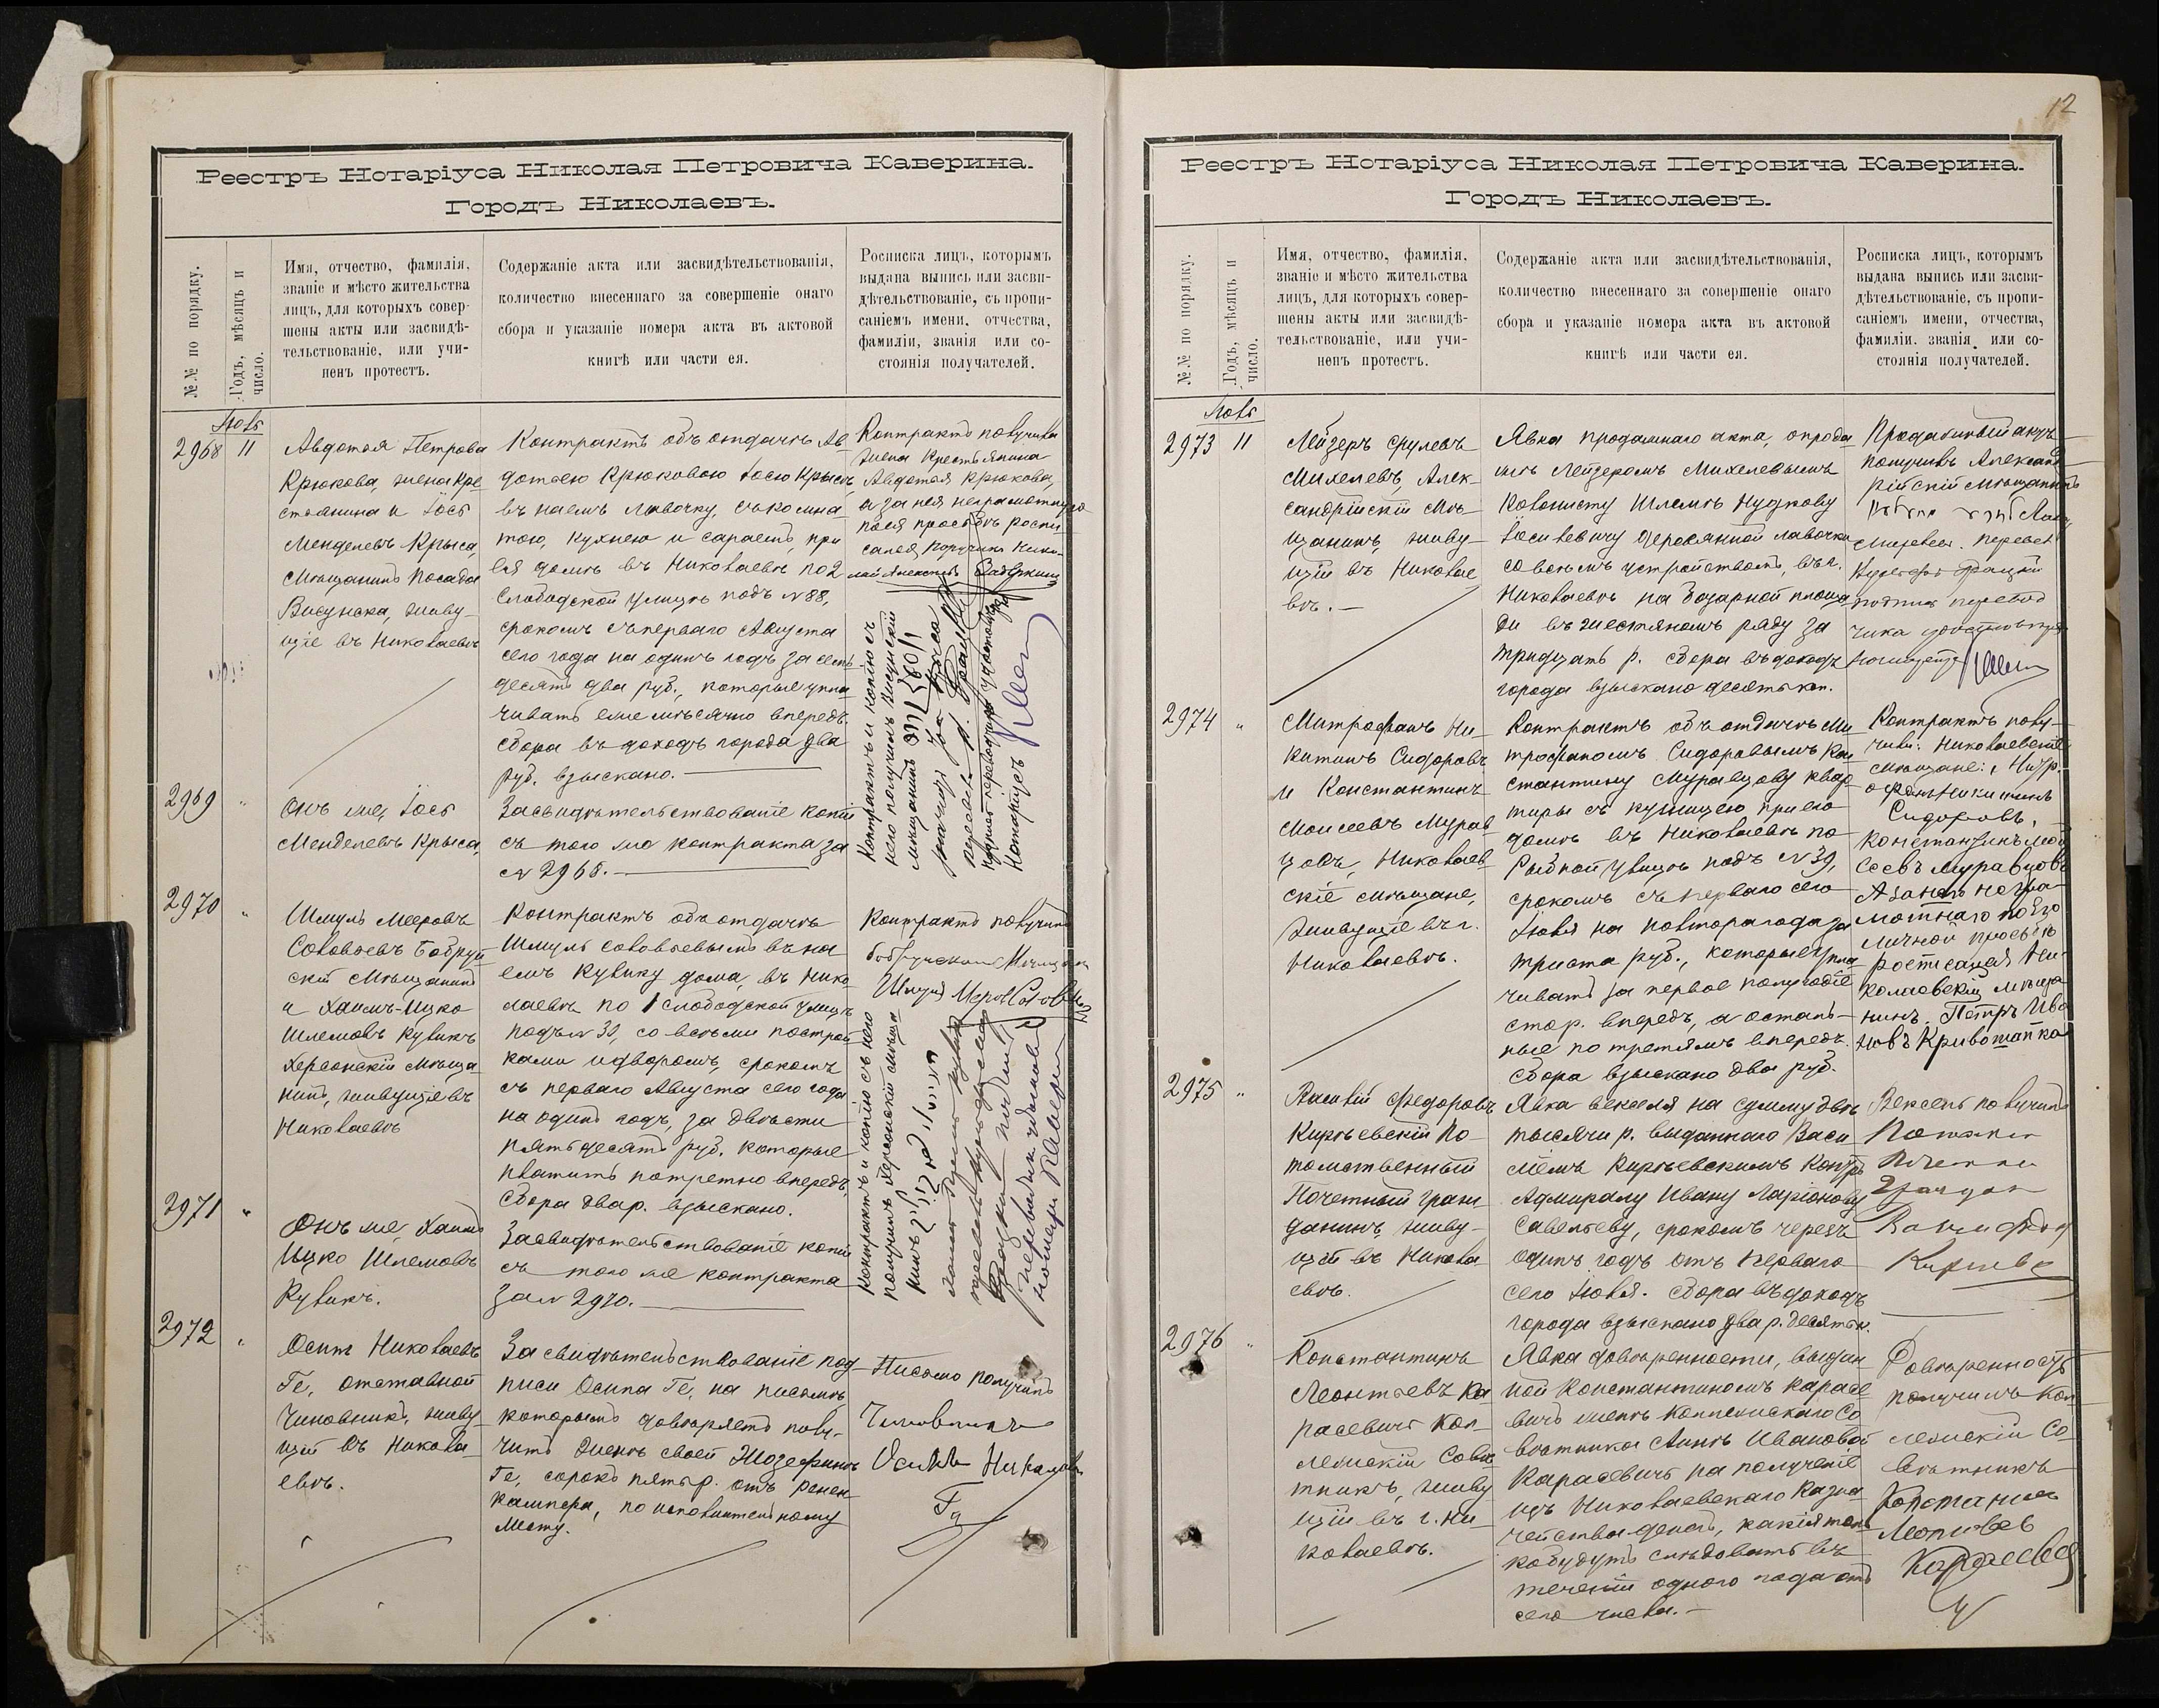 Реестръ Нотаріуса Николая Петровича Каверина.
Городъ Николаевъ.
№№ по порядку.
Годъ, мѣсяцъ и
число.
Имя, отчество, фамилія,
званіе и мѣсто жительства
лицъ, для которыхъ совер-
шены акты или засвидѣ-
тельствованіе, или учи-
ненъ протестъ.
Содержаніе акта или засвидѣтельствованія,
количество внесеннаго за совершеніе онаго
сбора и указаніе номера акта въ актовой
книгѣ или части ея.
Росписка лицъ, которымъ
выдана выпись или засви-
дѣтельствованіе, съ пропи-
саніемъ имени, отчества,
фамиліи, званія или со-
стоянія получателей.
2968
11
Авдотья Петрова
Крюкова, жена кре
стьянина и Іосъ
Менделевъ Крыса,
мѣщанинъ посада
Висунска, живу-
щіе въ Николаевѣ
Контрактъ объ отдачѣ Ав
дотьею Крюковою Іосю Крысѣ,
въ наемъ лавочку, съ комна-
тою, кухнею и сараемъ, при
ея домѣ въ Николаевѣ по 2
Слободской улицѣ подъ №88,
срокомъ съ перваго Августа
сего года на одинъ годъ за семь
десятъ два руб., которые упла
чивать ежемѣсячно впередъ.
Сбора въ доходъ города два
руб. взыскано.
Контрактъ получила
жена крестьянина
Авдотья Крюкова,
а за нея неграмотную
по ея просьбѣ роспи
сался поручикъ Нико-
лай Алексѣевъ
Контрактъ и копію съ
него получилъ Висунскій
мѣщанинъ
Нотаріусъ
2969
"
Онъ же, Іосъ
Менделевъ Крыса,
Засвидѣтельствованіе копіи
съ того же контракта за
№ 2968.
2970
"
Шмуль Мееровъ
Соловьевъ Бобруй
скій мѣщанинъ
и Хаимъ-Ицко
Шлемовъ Кувикъ
Херсонскій мѣща
нинъ, живущіе въ
Николаевѣ
Контрактъ объ отдачѣ
Шмуль Соловьевымъ въ на
емъ Кувику дома, въ Нико-
лаевѣ по 1 слободской улицѣ
подъ № 30, со всѣми построй
ками и дворомъ, срокомъ
съ перваго Августа сего года
на одинъ годъ, за двѣсти
пятьдесятъ руб. которые
платить потретно впередъ,
Сбора два р. взыскано.
Контрактъ получилъ
Контрактъ и копію съ него
получилъ Херсонскій мѣща
нинъ
2971
"
Онъ же, Хаимъ
Ицко Шлемовъ
Кувикъ.
Засвидѣтельствованіе копіи
съ того же контракта
за № 2970.
2972
"
Осипъ Николаевъ
Ге, отставной
чиновникъ, живу
щій въ Никола
евѣ.
Засвидѣтельствованіе под
писи Осипа Ге, на письмѣ,
которымъ довѣряетъ полу-
чить женѣ своей Жозефинѣ
Ге, сорокъ пять р. отъ Ренен
кампера, по исполнительному
листу.
Письмо получилъ
Чиновникъ
Осипъ Николаевъ
Ге
12
Реестръ Нотаріуса Николая Петровича Каверина.
Городъ Николаевъ.
№№ по порядку.
Годъ, мѣсяцъ и
число.
Имя, отчество, фамилія,
званіе и мѣсто жительства
лицъ, для которыхъ совер-
шены акты или засвидѣ-
тельствованіе, или учи-
ненъ протестъ.
Содержаніе акта или засвидѣтельствованія,
количество внесеннаго за совершеніе онаго
сбора и указаніе номера акта въ актовой
книгѣ или части ея.
Росписка лицъ, которымъ
выдана выпись или засви-
дѣтельствованіе, съ пропи-
саніемъ имени, отчества,
фамиліи, званія или со-
стоянія получателей.
2973
11
Лейзеръ Срулевъ
Михелевъ, Алек-
сандрійскій мѣ-
щанинъ, живу-
щій въ Николае
вѣ.
Явка продажнаго акта, о прода
жѣ Лейзеромъ Михелевымъ
колонисту Шлемѣ Нудкову
Іосилевичу деревянной лавочки
со всѣмъ устройствомъ, въ г.
Николаевѣ на базарной площа
ди въ жестяномъ ряду за
тридцать р. сбора въ доходъ
города взыскано десять коп.
Продажный актъ
получилъ Александ
рійскій мѣщанинъ
2974
"
Митрофанъ Ни-
китинъ Сидоровъ
и Константинъ
Моисеевъ Мурав
цовъ, Николаев
скіе мѣщане,
живущіе въ г.
Николаевѣ.
Контрактъ объ отдачѣ Ми
трофаномъ Сидоровымъ Кон
стантину Муравцову квар
тиры съ кузницею при его
домѣ въ Николаевѣ по
Рыбной улицѣ подъ №39,
срокомъ съ перваго сего
Іюля на полтора года за
триста руб., которые упла
чивать за первое полугодіе
сто р. впередъ, а осталь-
ные по третямъ впередъ.
Сбора взыскано два руб.
Контрактъ полу-
чили: Николаевскіе
мѣщане: Митр-
офанъ Никитинъ
Сидоровъ,
Константинъ Мои
сеевъ Муравцовъ
А за нихъ негра-
мотнаго по Его
личной просьбѣ
росписался Ни-
колаевскій мѣща
нинъ Петръ Ива
новъ Кривошапка
2975
"
Василій Федоровъ
Кирѣевскій По-
томственный
Почетный граж
данинъ, живу-
щій въ Никола
евѣ.
Явка векселя на сумму двѣ
тысячи р. выданнаго Васи
ліемъ Кирѣевскимъ Контръ
Адмиралу Ивану Ларіонову
Савельеву, срокомъ черезъ
одинъ годъ отъ перваго
сего Іюля. Сбора въ доходъ
города взыскано два р. десять к.
Вексель получилъ
2976
"
Константинъ
Леонтьевъ Ка
расевичъ Кол-
лежскій Совѣ
тникъ, живу
щій въ г. Ни-
колаевѣ.
Явка довѣренности, выдан
ной Константиномъ Карасе
вичъ женѣ Коллежскаго Со
вѣтника Аннѣ Ивановой
Карасевичъ на полученіе
изъ Николаевскаго Казна
чейства денегъ, какія толь
ко будутъ слѣдовать въ
теченіи одного года отъ
сего числа.
Довѣренность
получилъ Кол-
лежскій Со-
вѣтникъ
Константинъ
Леонтьевъ
Карасевичъ